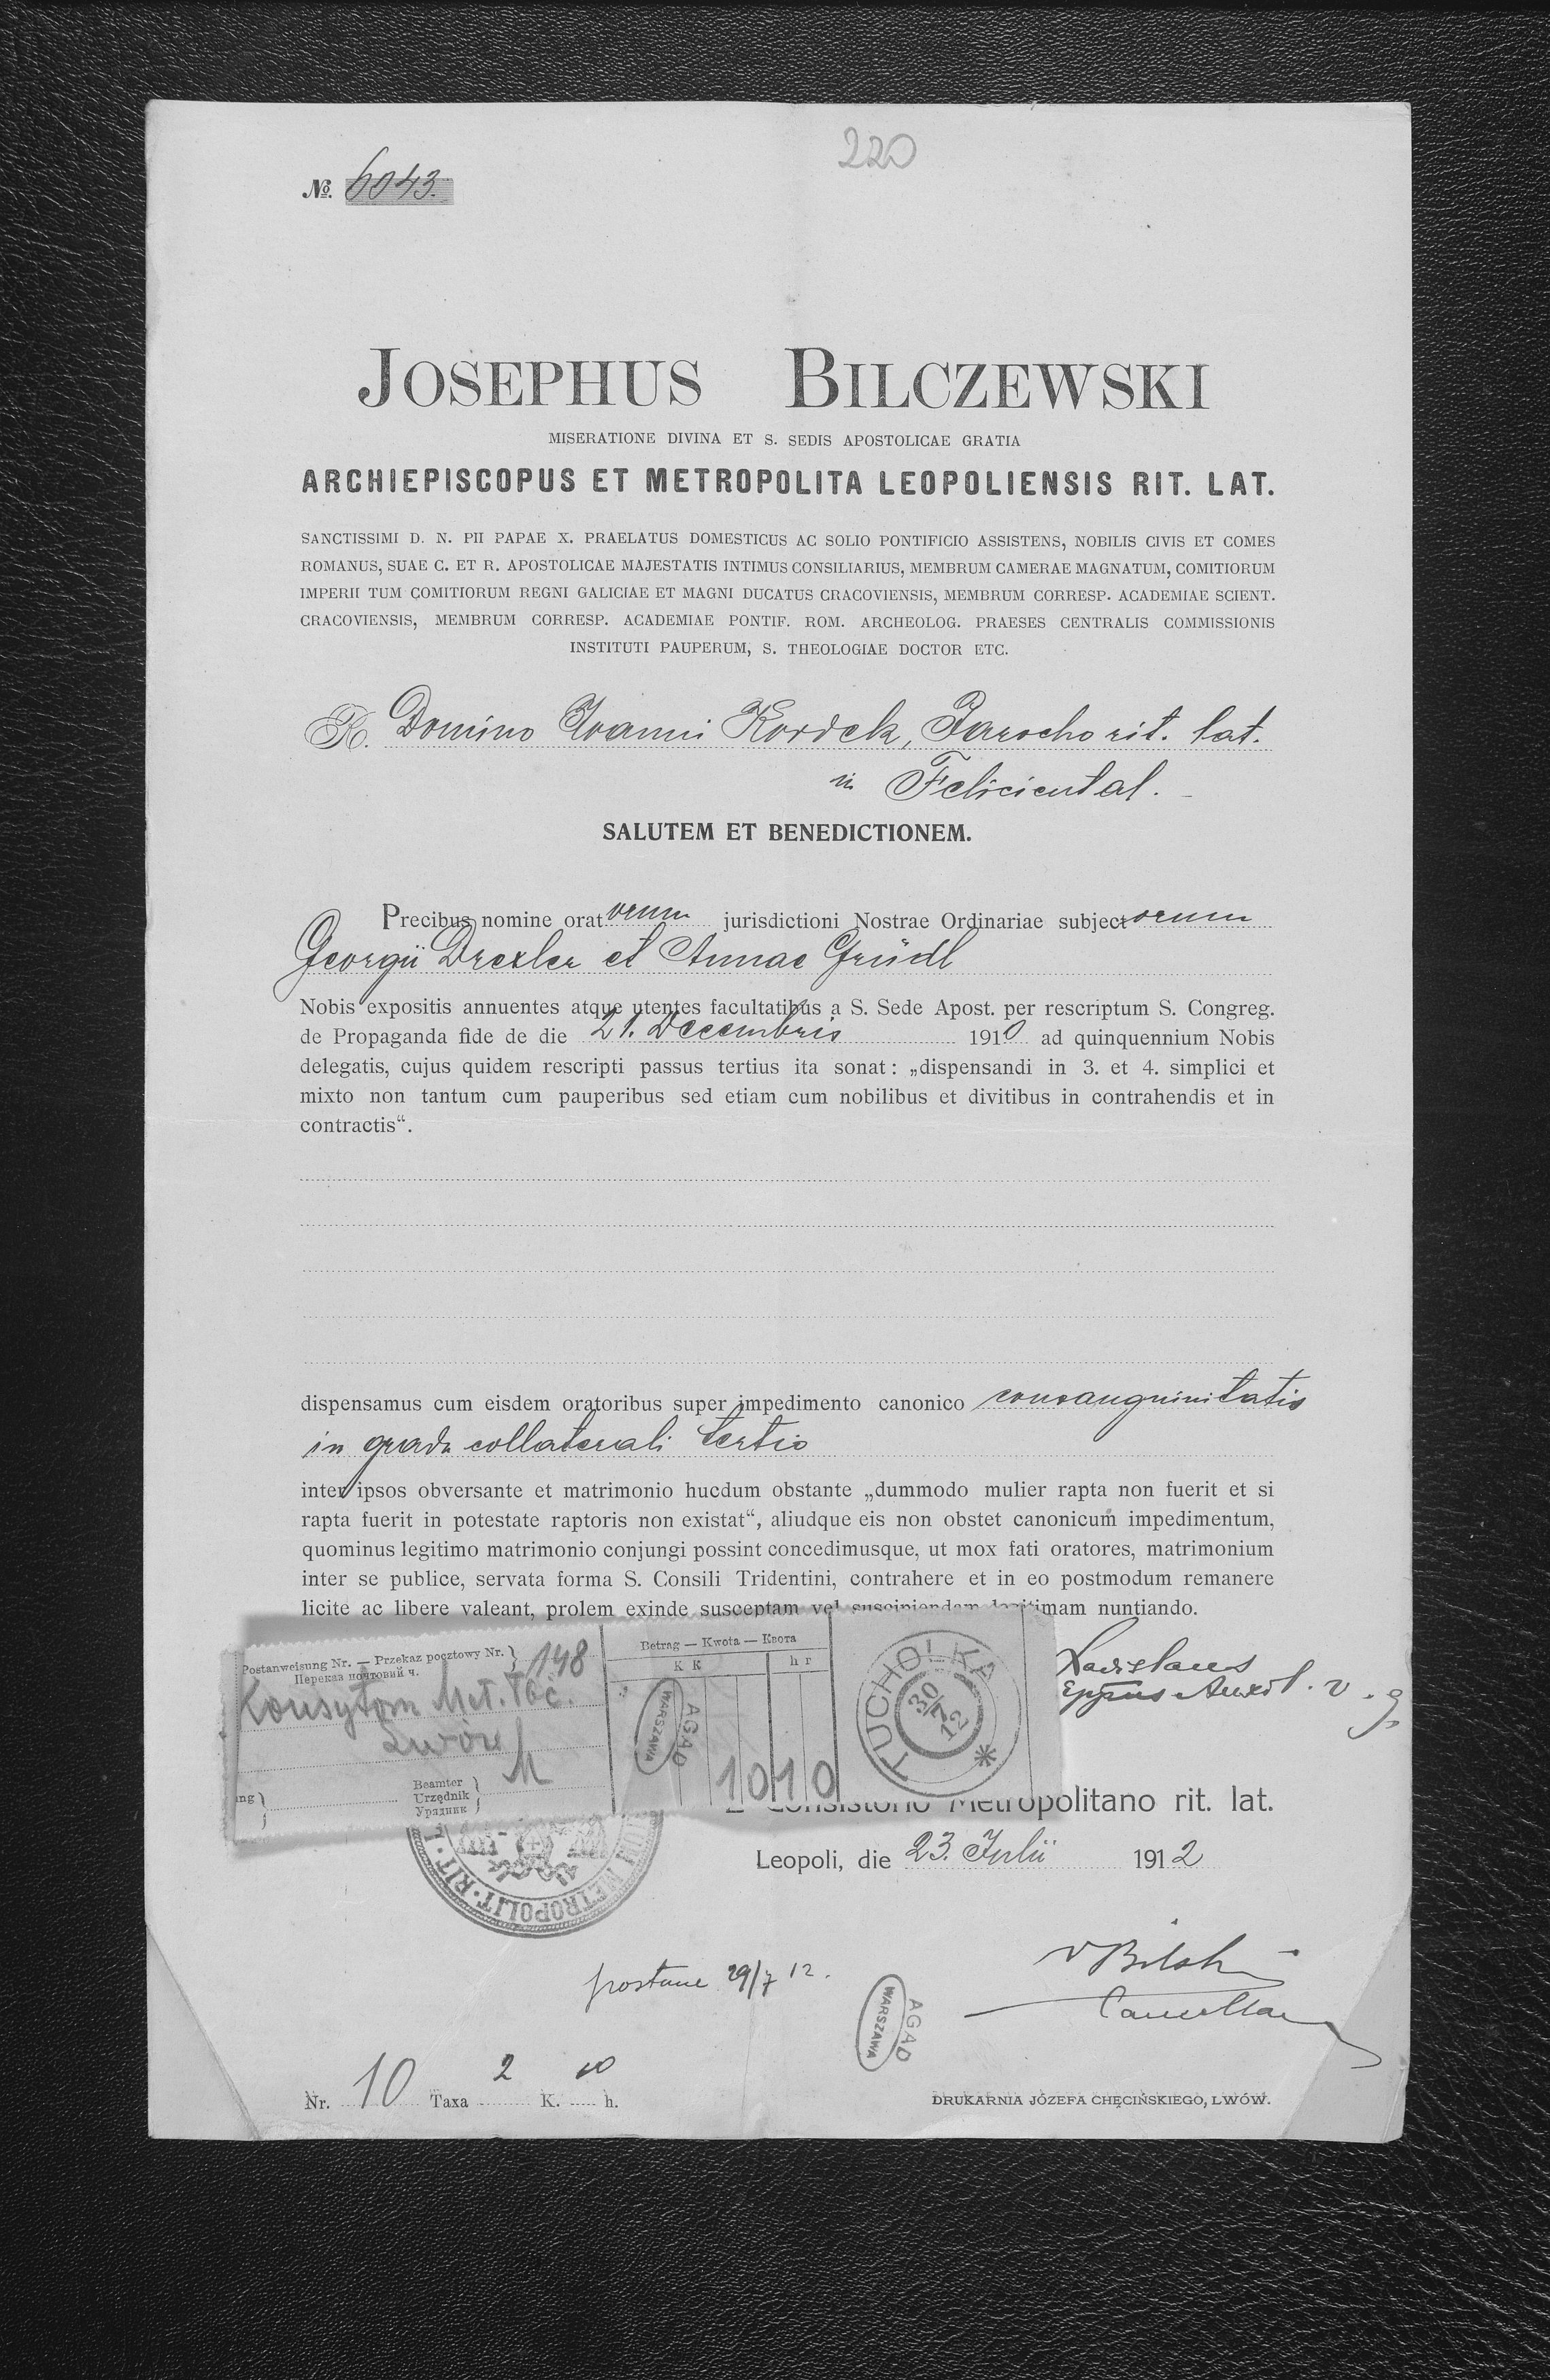 220
№. 6043.
JOSEPHUS BILCZEWSKI
MISERATIONE DIVINA ET S. SEDIS APOSTOLICAE GRATIA
ARCHIEPISCOPUS ET METROPOLITA LEOPOLIENSIS RIT. LAT.
SANCTISSIMI D. N. PII PAPAE X. PRAELATUS DOMESTICUS AC SOLIO PONTIFICIO ASSISTENS, NOBILIS CIVIS ET COMES
ROMANUS, SUAE C. ET R. APOSTOLICAE MAJESTATIS INTIMUS CONSILIARIUS, MEMBRUM CAMERAE MAGNATUM, COMITIORUM
IMPERII TUM COMITIORUM REGNI GALICIAE ET MAGNI DUCATUS CRACOVIENSIS, MEMBRUM CORRESP. ACADEMIAE SCIENT.
CRACOVIENSIS, MEMBRUM CORRESP. ACADEMIAE PONTIF. ROM. ARCHEOLOG. PRAESES CENTRALIS COMMISSIONIS
INSTITUTI PAUPERUM, S. THEOLOGIAE DOCTOR ETC.
R. Domino Ioanni Kordek, Parocho rit. lat.
in Feliciental.
SALUTEM ET BENEDICTIONEM.
Precibus nomine oratorum jurisdictioni Nostrae Ordinariae subjectorum
Georgii Drexler et Annae Gründl
Nobis expositis annuentes atque utentes facultatibus a S. Sede Apost. per rescriptum S. Congreg.
de Propaganda fide de die 21. Decembris 1910 ad quinquennium Nobis
delegatis, cujus quidem rescripti passus tertius ita sonat: „dispensandi in 3. et 4. simplici et
mixto non tantum cum pauperibus sed etiam cum nobilibus et divitibus in contrahendis et in
contractis“.
dispensamus cum eisdem oratoribus super impedimento canonico consanguinitatis
in gradu collaterali tertio
inter ipsos obversante et matrimonio hucdum obstante „dummodo mulier rapta non fuerit et si
rapta fuerit in potestate raptoris non existat“, aliudque eis non obstet canonicum impedimentum,
quominus legitimo matrimonio conjungi possint concedimusque, ut mox fati oratores, matrimonium
inter se publice, servata forma S. Consili Tridentini, contrahere et in eo postmodum remanere
licite ac libere valeant, prolem exinde susceptam vel suscipiendam legitimam nuntiando.
Postanweisung Nr. — Przekaz pocztowy Nr. } 148
Переказ почтовий ч.
Konsystorz Met. łać.
Lwów
ing }
Beamter
Urzędnik
Урядник }
Betrag — Kwota — Квота
K K h r
10 10
AGAD
WARSZAWA
TUCHOLKA
30/7 12
*
Ladislaus
Eppus Auxil. v. g.
E Consistorio Metropolitano rit. lat.
METROPOLIT. RIT. L
Leopoli, die 23. Julii 1912
postane 29/7 12.
AGAD
WARSZAWA
Nr. 10 Taxa 2 K. 10 h.
DRUKARNIA JÓZEFA CHĘCIŃSKIEGO, LWÓW.